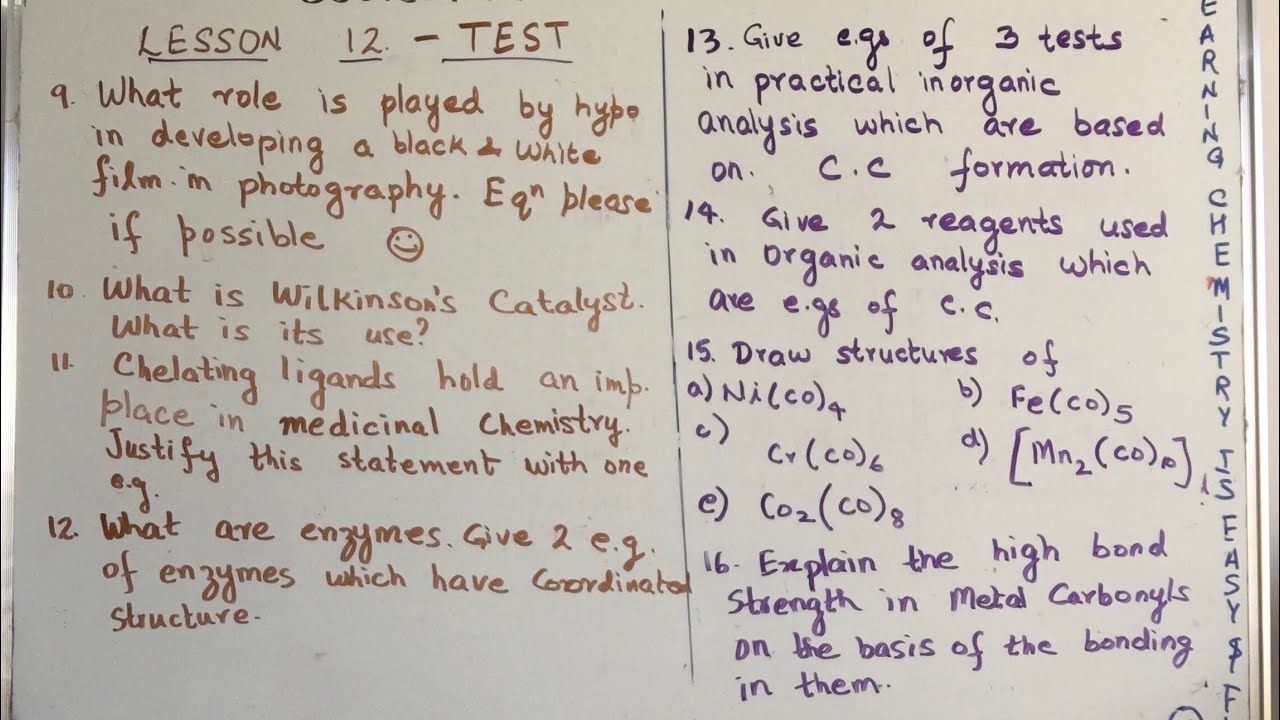 LESSON 12. - TEST
9. What role is played by hypo
in developing a black & white
film in photography. Eqⁿ please
if possible ☺
10. What is Wilkinson's Catalyst.
What is its use?
11. Chelating ligands hold an imp.
place in medicinal Chemistry.
Justify this statement with one
e.g.
12. What are enzymes. Give 2 e.g.
of enzymes which have Coordinated
structure.
13. Give e.gs of 3 tests
in practical inorganic
analysis which are based
on. C.C formation.
14. Give 2 reagents used
in organic analysis which
are e.gs of C.C.
15. Draw structures of
a) Ni(CO)₄ b) Fe(CO)₅
c) Cr(CO)₆ d) [Mn₂(CO)₁₀]
e) Co₂(CO)₈
16. Explain the high bond
strength in Metal Carbonyls
on the basis of the bonding
in them.
EARNING CHEMISTRY IS EASY & F